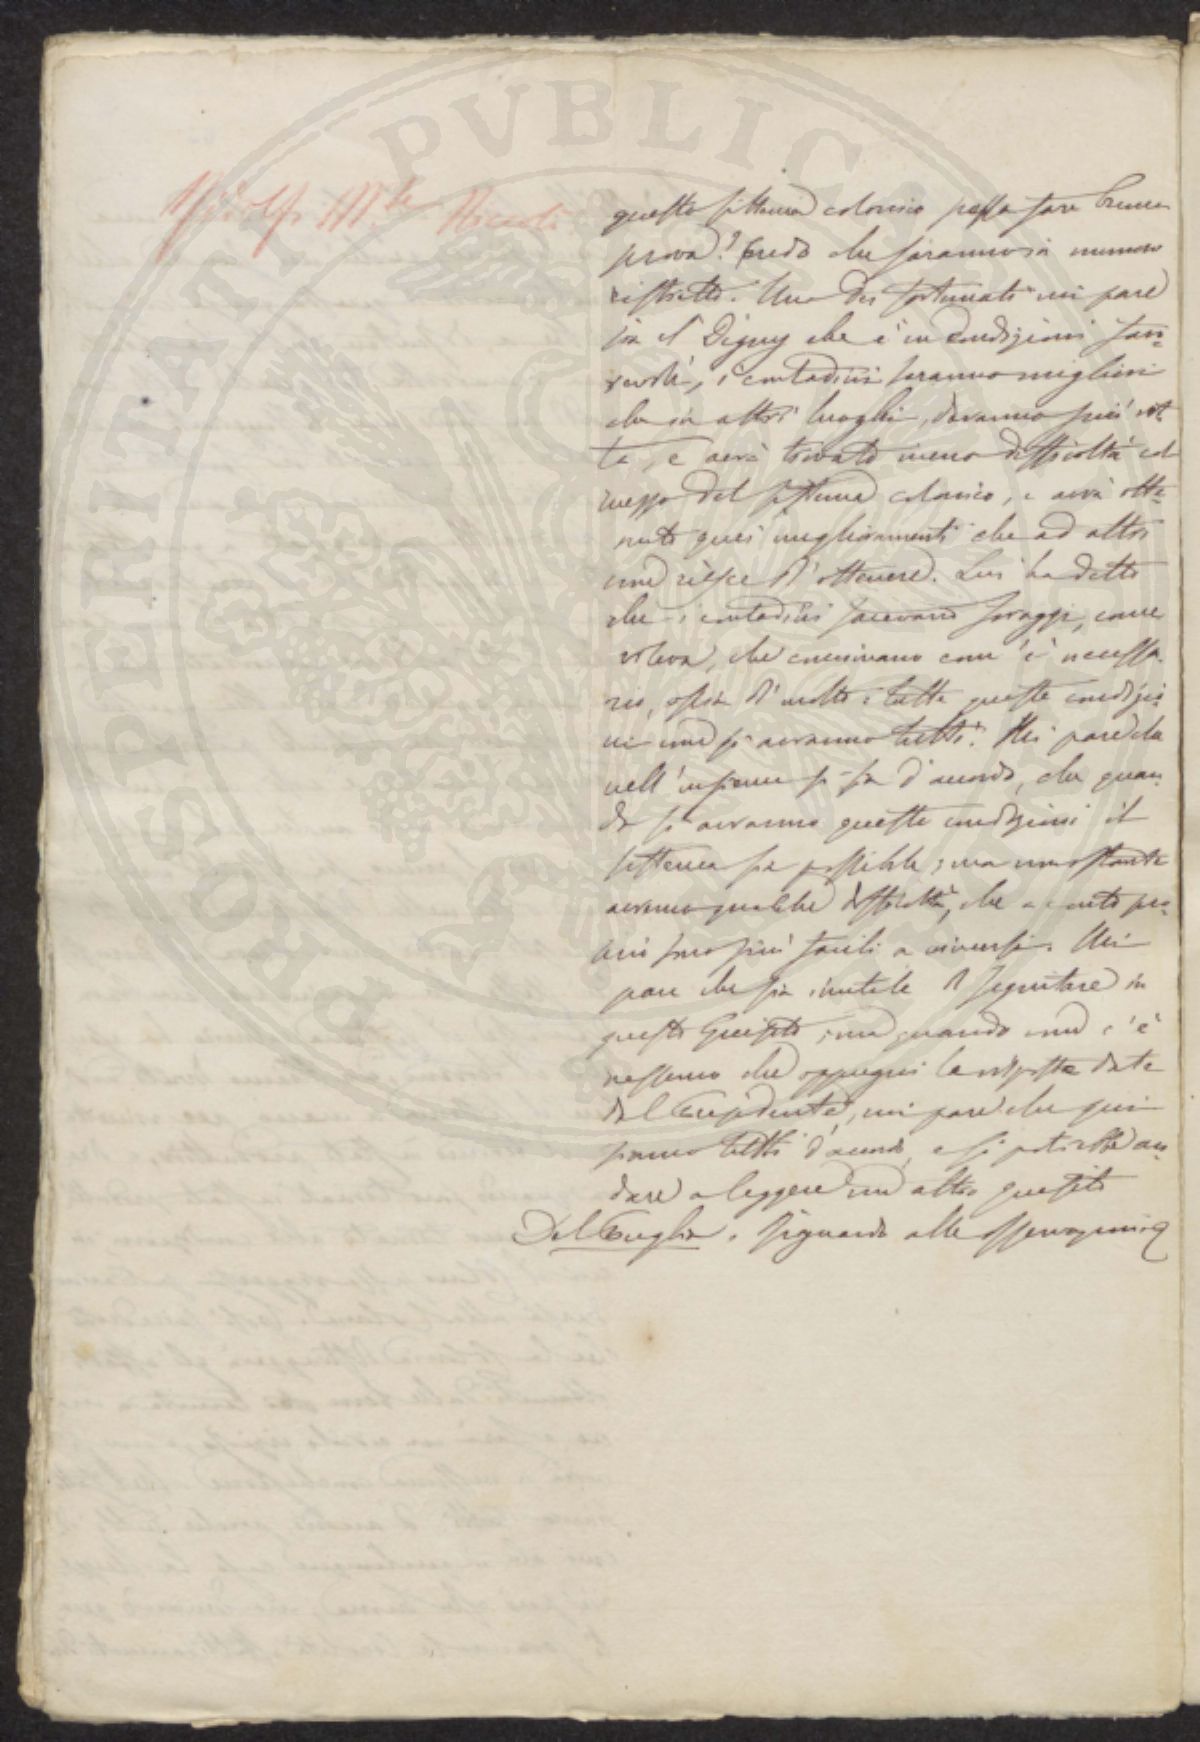 PROSPERITATI PVBLICAE
questo sistema colonico possa fare buona
prova? Credo che saranno in numero
ristretto. Uno dei fortunati mi pare
sia il Digny che è in condizioni favo=
revoli, i contadini saranno migliori
che in altri luoghi, daranno più ret
ta, e avrà trovato meno difficoltà col
mezzo del sistema colonico, e avrà otte=
nuto quei miglioramenti che ad altri
non riesce d'ottenere. Lui ha detto
che i contadini facevano foraggi, come
voleva, che concimano com'è necessa
rio, ossia di molto: tutte queste condizio
ni non si avranno tutti. Mi pare che
nell'insieme si sia d'accordo, che quan
do si avranno queste condizioni il
sistema sia possibile; ma nonostante
avremo qualche difficoltà, che a conto pro=
prio sono più facili a vincersi. Mi
pare che sia inutile il seguitare in
questo Quesito; ma quando non c'è
nessuno che oppugni la risposta data
dal Presidente, mi pare che qui
siamo tutti d'accordo, e si potrebbe an=
dare a leggere un altro quesito
Del Puglia. Riguardo alle osservazioni